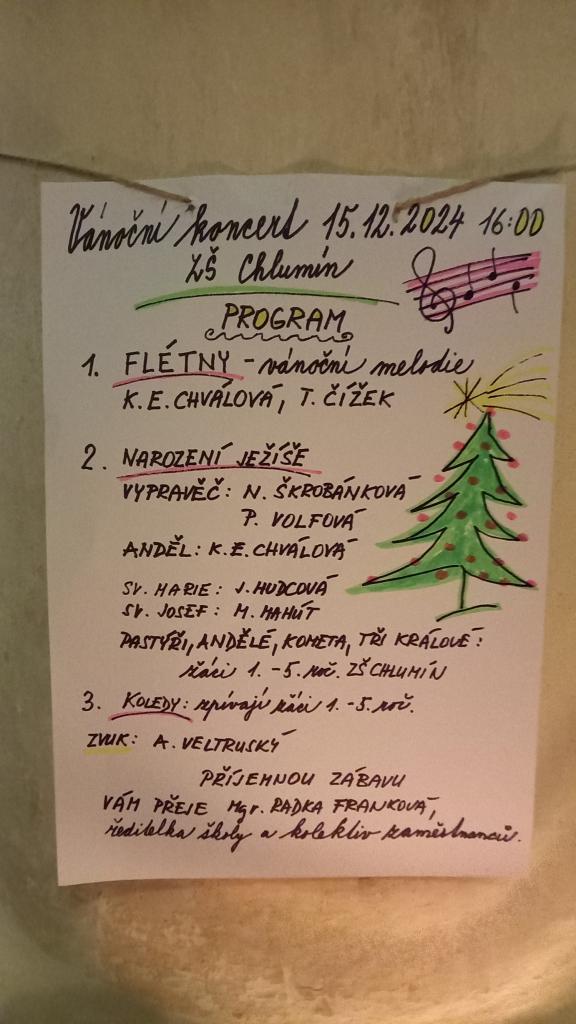 Vánoční koncert 15.12.2024 16:00
ZŠ Chlumín
PROGRAM
1. FLÉTNY - vánoční melodie
K. E. CHVÁLOVÁ, T. ČÍŽEK
2. NAROZENÍ JEŽÍŠE
VYPRAVĚČ: N. ŠKROBÁNKOVÁ
P. VOLFOVÁ
ANDĚL: K. E. CHVÁLOVÁ
SV. MARIE: J. HUDCOVÁ
SV. JOSEF: M. MAHÚT
PASTÝŘI, ANDĚLÉ, KOMETA, TŘI KRÁLOVÉ:
žáci 1. - 5. roč. ZŠ CHLUMÍN
3. KOLEDY: zpívají žáci 1. - 5. roč.
ZVUK: A. VELTRUSKÝ
PŘÍJEMNOU ZÁBAVU
VÁM PŘEJE Mgr. RADKA FRANKOVÁ,
ředitelka školy a kolektiv zaměstnanců.